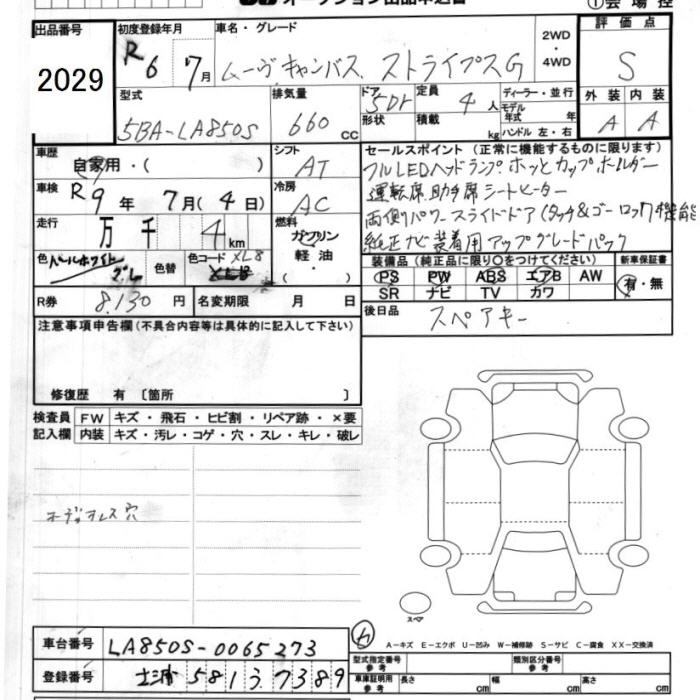 オークション出品申込書 ①会場控
出品番号 2029
初度登録年月 R6 7月
車名・グレード ムーヴキャンバス ストライプスG
2WD・4WD
評価点 S
外装 A 内装 A
型式 5BA-LA850S
排気量 660cc
ドア 形状 5Dr
定員 4人
積載 kg
ディーラー・並行
モデル年式 年
ハンドル 左・右
車歴 自家用・( )
シフト AT
セールスポイント(正常に機能するものに限ります)
フルLEDヘッドランプ ホッとカップホルダー
運転席助手席シートヒーター
両側パワースライドドア(タッチ&ゴーロック機能
純正ナビ装着用アップグレードパック
車検 R9年 7月(4日)
冷房 AC
走行 万 千 4km
燃料 ガソリン 軽油・( )
色 パールホワイト グレー
色替
色コード XL8 XL8
装備品(純正品に限り○をつけてください)
PS PW ABS エアB AW
SR ナビ TV カワ
新車保証書 有・無
R券 8,130円
名変期限 月 日
後日品 スペアキー
注意事項申告欄(不具合内容等は具体的に記入して下さい)
修復歴 有 〔箇所 〕
検査員記入欄
FW キズ・飛石・ヒビ割・リペア跡・×要
内装 キズ・汚レ・コゲ・穴・スレ・キレ・破レ
オーディオレス穴
スペア
A-キズ E-エクボ U-凹み W-補修跡 S-サビ C-腐食 XX-交換済
車台番号 LA850S-0065273
登録番号 土浦 581 7389
型式指定番号 参考
類別区分番号 参考
車庫証明用 参考 長さ cm 幅 cm 高さ cm